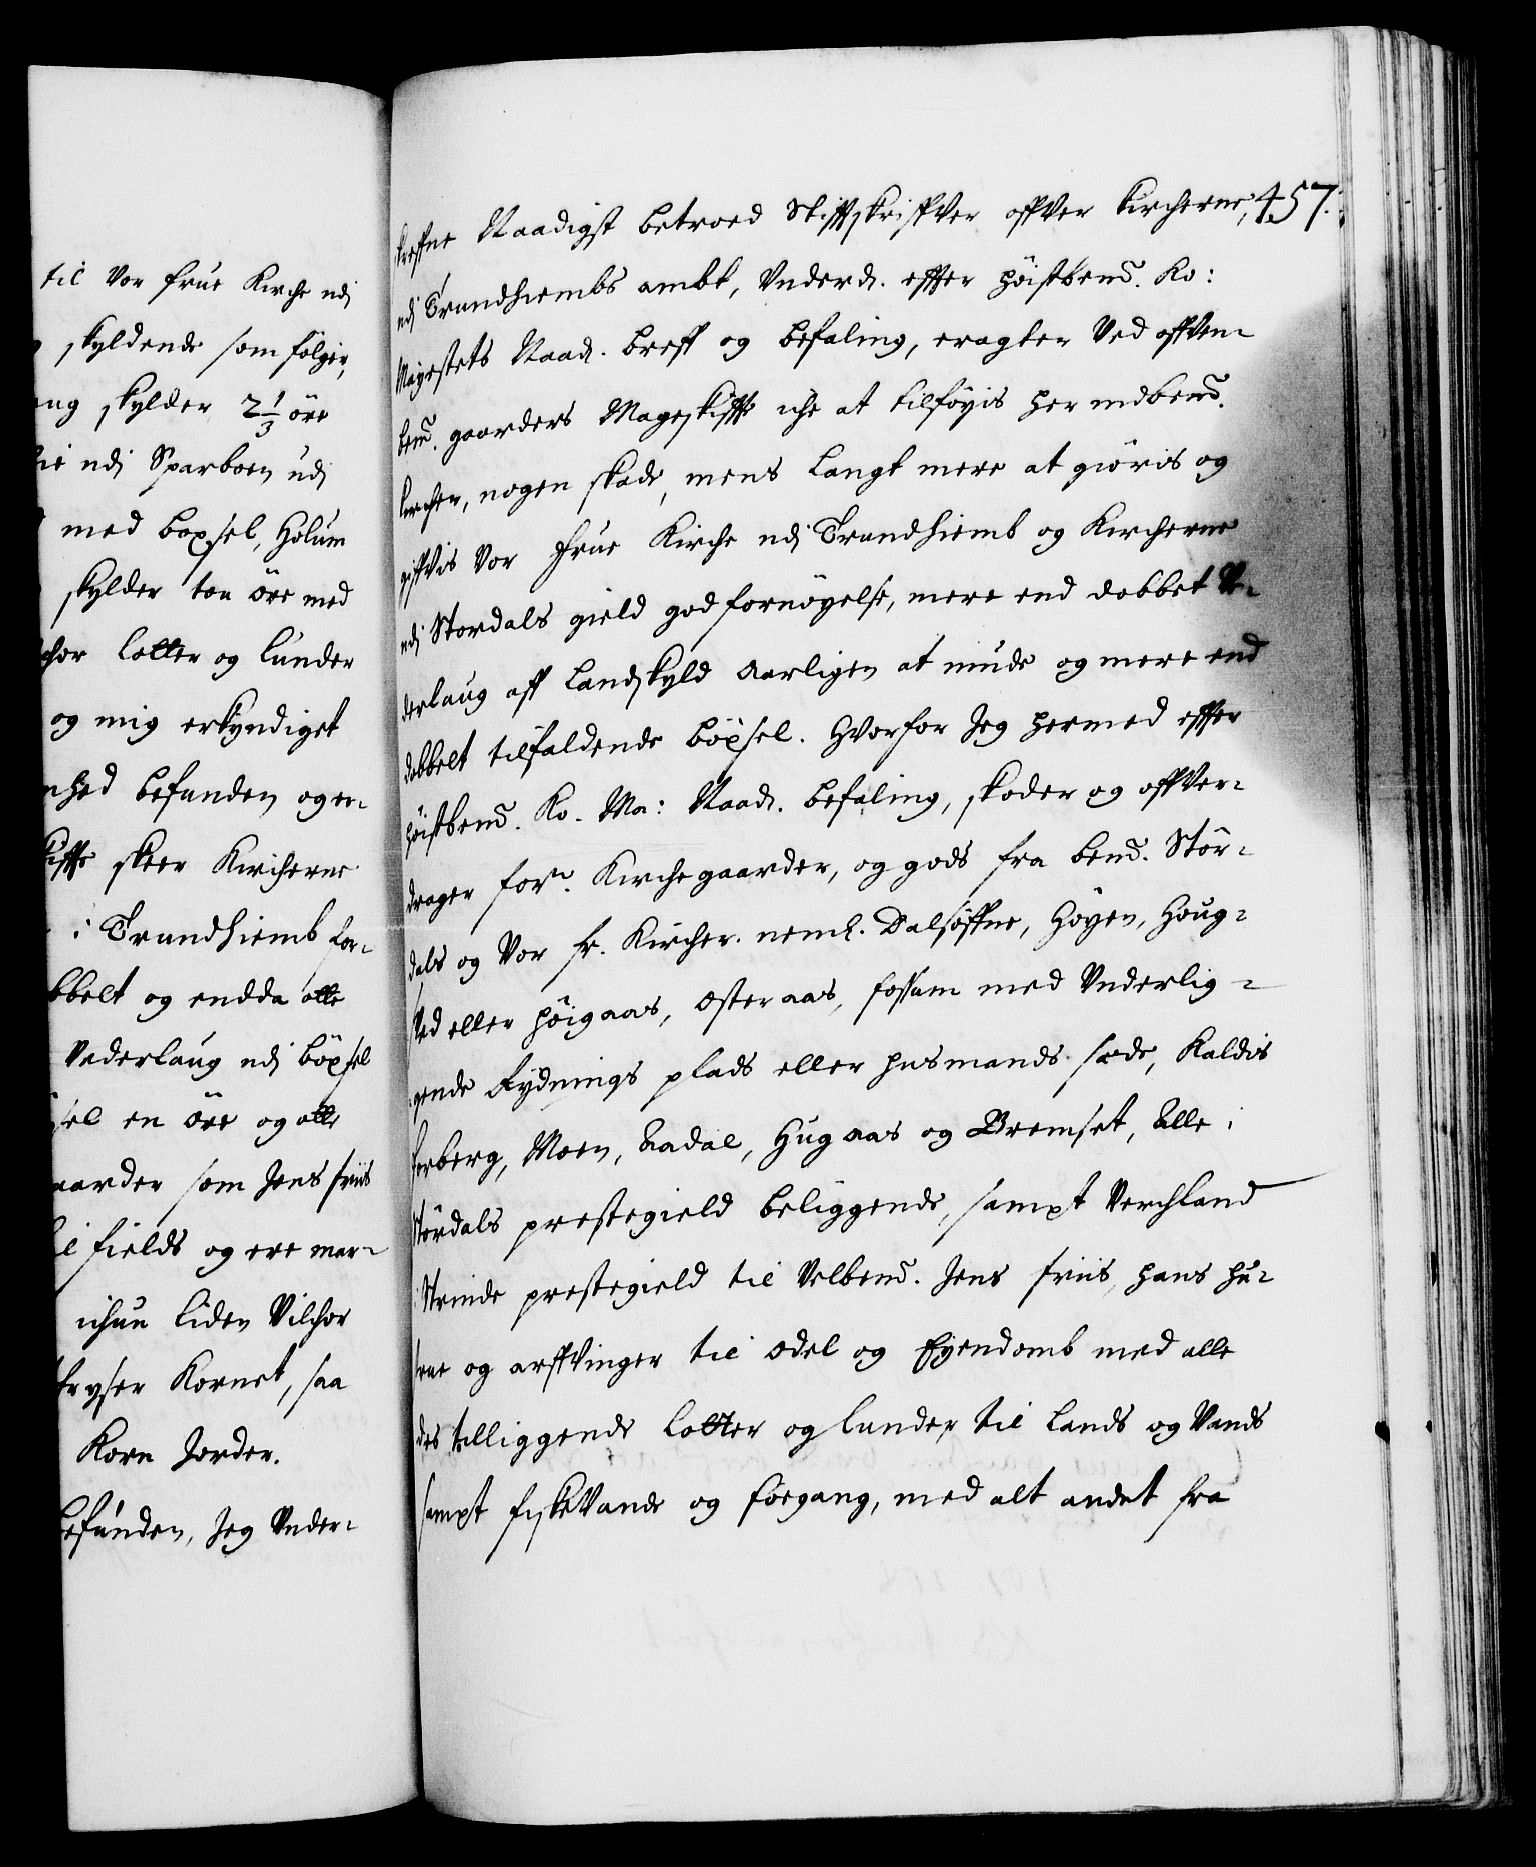 til Vor frue Kirche udj
skyldende som følger,
skylder 2 1/3 öre
udj Sparboen udj
med boxsel, Holum
skylder toe öre med
lotter og lunder
og mig erkyndiget
befunden og er-
skeer Kircherne
i Trundhiemb for-
bbelt og endda otte
Vederlaug udj böxsel
sel en öre og otte
aarder som Jens friis
fields og ere mar-
ichun liden Vilchor
fryser Kornet, saa
Korn Jorder.
befunden, Jeg Under-
457.
skreffne Naadigst betroed Stifftskriffver offver Kircherne,
udj Trundhiembs ambt, Underd. effter höistbemd. Ko:
Mayestets Naad. breff og befaling, eragter Ved offven-
bemd. gaarders Mageskiffte iche at tilföyis her udbemd.
kircher, nogen skade, mens langt mere at giöris og
giffvis Vor Frue Kirche udj Trundhiemb og Kircherne
udj Stordals gield god fornöyelse, mere end dobbet Ve-
derlaug aff Landskyld aarligen at niude og mere end
dobbelt tilfaldende böxsel. Hvorfor Jeg hermed effter
höistbemd. Ko. Ma: Naad. befaling, skøder og offver-
drager forn. Kirchegaarder, og gods fra bemd. Stör-
dals og Vor fr. Kircher. neml. Dalsöffne, Höyen, Houg-
Ved eller höigaas, Osteraas, fossum med Underlig-
gende Rydnings plads eller husmands sæde, Kaldis
berg, Moen, Aadal, Hugaas og Bremset, Alle i
Stördals prestegield beliggende, sampt Verchland
i Strinde prestegield til Velbemd. Jens friis, hans hu-
strue og arffvinger til Odel og Eyendomb med alle
des tilliggende lotter og lunder til Lands og Vands
sampt fiskeVande og foegang, med alt andet fra